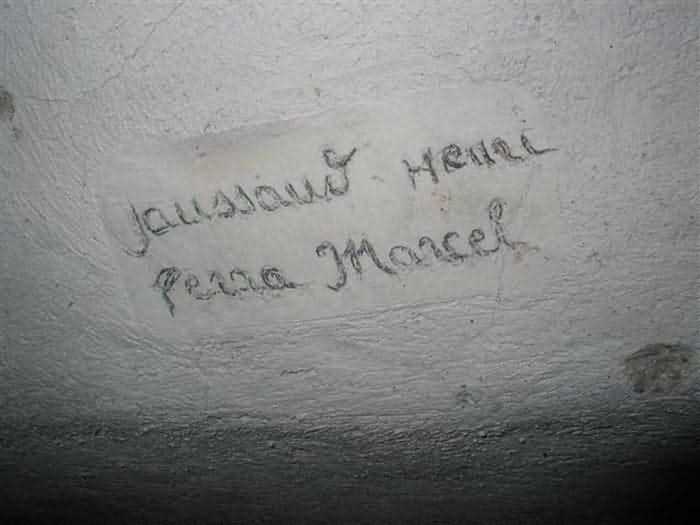 Jaussaud Henri
Perra Marcel